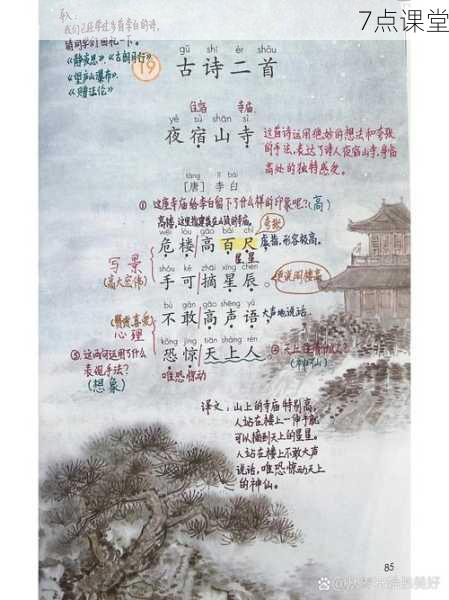 7点课堂
我们已经学过多首李白的诗,
请同学们回忆一下。
《静夜思》、《古朗月行》
《望庐山瀑布》、
《赠汪伦》
gǔ shī èr shǒu
19 古诗二首
住宿 寺庙
yè sù shān sì
夜宿山寺
这首诗运用绝妙的想法和夸张
的手法,表达了诗人夜宿山寺,身临
高处的独特感受。
táng lǐ bái
[唐] 李白
①这座寺庙给李白留下了什么样的印象呢?(高)
高楼,这里指建筑在山顶的寺庙。
夸张
wēi lóu gāo bǎi chǐ
危楼高百尺,
虚指,形容极高。
星星
shǒu kě zhāi xīng chén
手可摘星辰。
写景
(高大宏伟)
bù gǎn gāo shēng yǔ
不敢高声语,
大声地说话
心理
kǒng jīng tiān shàng rén
恐惊天上人。
唯恐惊动
③这两句运用了什么
表现手法?
(想象)
译文:山上的寺庙特别高,
人站在楼上一伸手就
可以摘到天上的星星。
人站在楼上不敢大声
说话,唯恐惊动天上
的神仙。
85